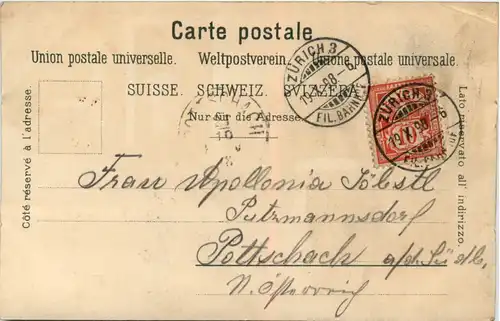 Carte postale
Union postale universelle. Weltpostverein. Unione postale universale.
SUISSE. SCHWEIZ. SVIZZERA.
Nur für die Adresse.
Côté réservé à l'adresse.
Lato riservato all' indirizzo.
ZÜRICH 3
FIL. BAHNH.
ZÜRICH 3
Frau Apollonia
Putzmannsdorf
Pottschach a/d. Südb.
N. Österreich